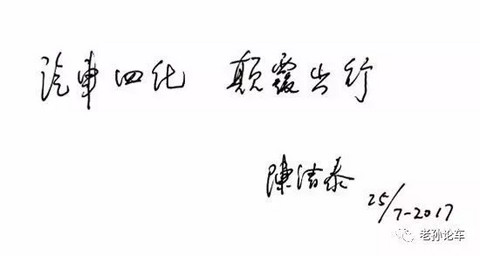 汽車四化 颠覆出行
陳清泰
25/7-2017
老孙论车